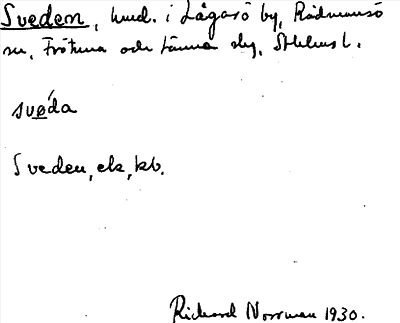 Sveden, hmd. i Lågarö by, Rådmansö
sn, Frötuna och Länna slg, Sthlms l.
svǿda
Sveden, ek, kb.
Rickard Norrman 1930.